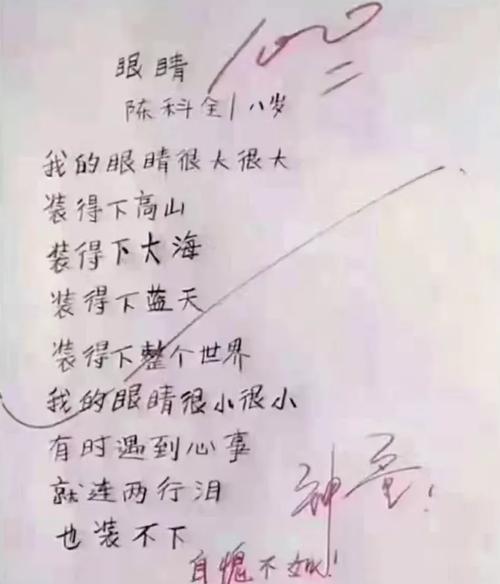 100
眼睛
陈科全 八岁
我的眼睛很大很大
装得下高山
装得下大海
装得下蓝天
装得下整个世界
我的眼睛很小很小
有时遇到心事
就连两行泪
也装不下
神童!
自愧不如!